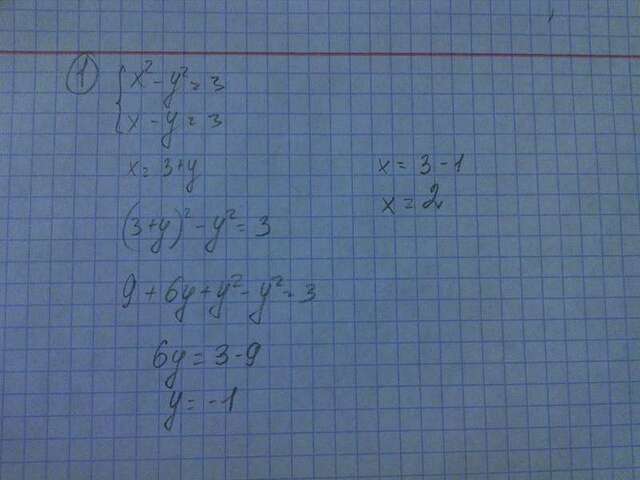 1 { x² - y² = 3
x - y = 3
x = 3 + y
(3 + y)² - y² = 3
9 + 6y + y² - y² = 3
6y = 3 - 9
y = -1
x = 3 - 1
x = 2